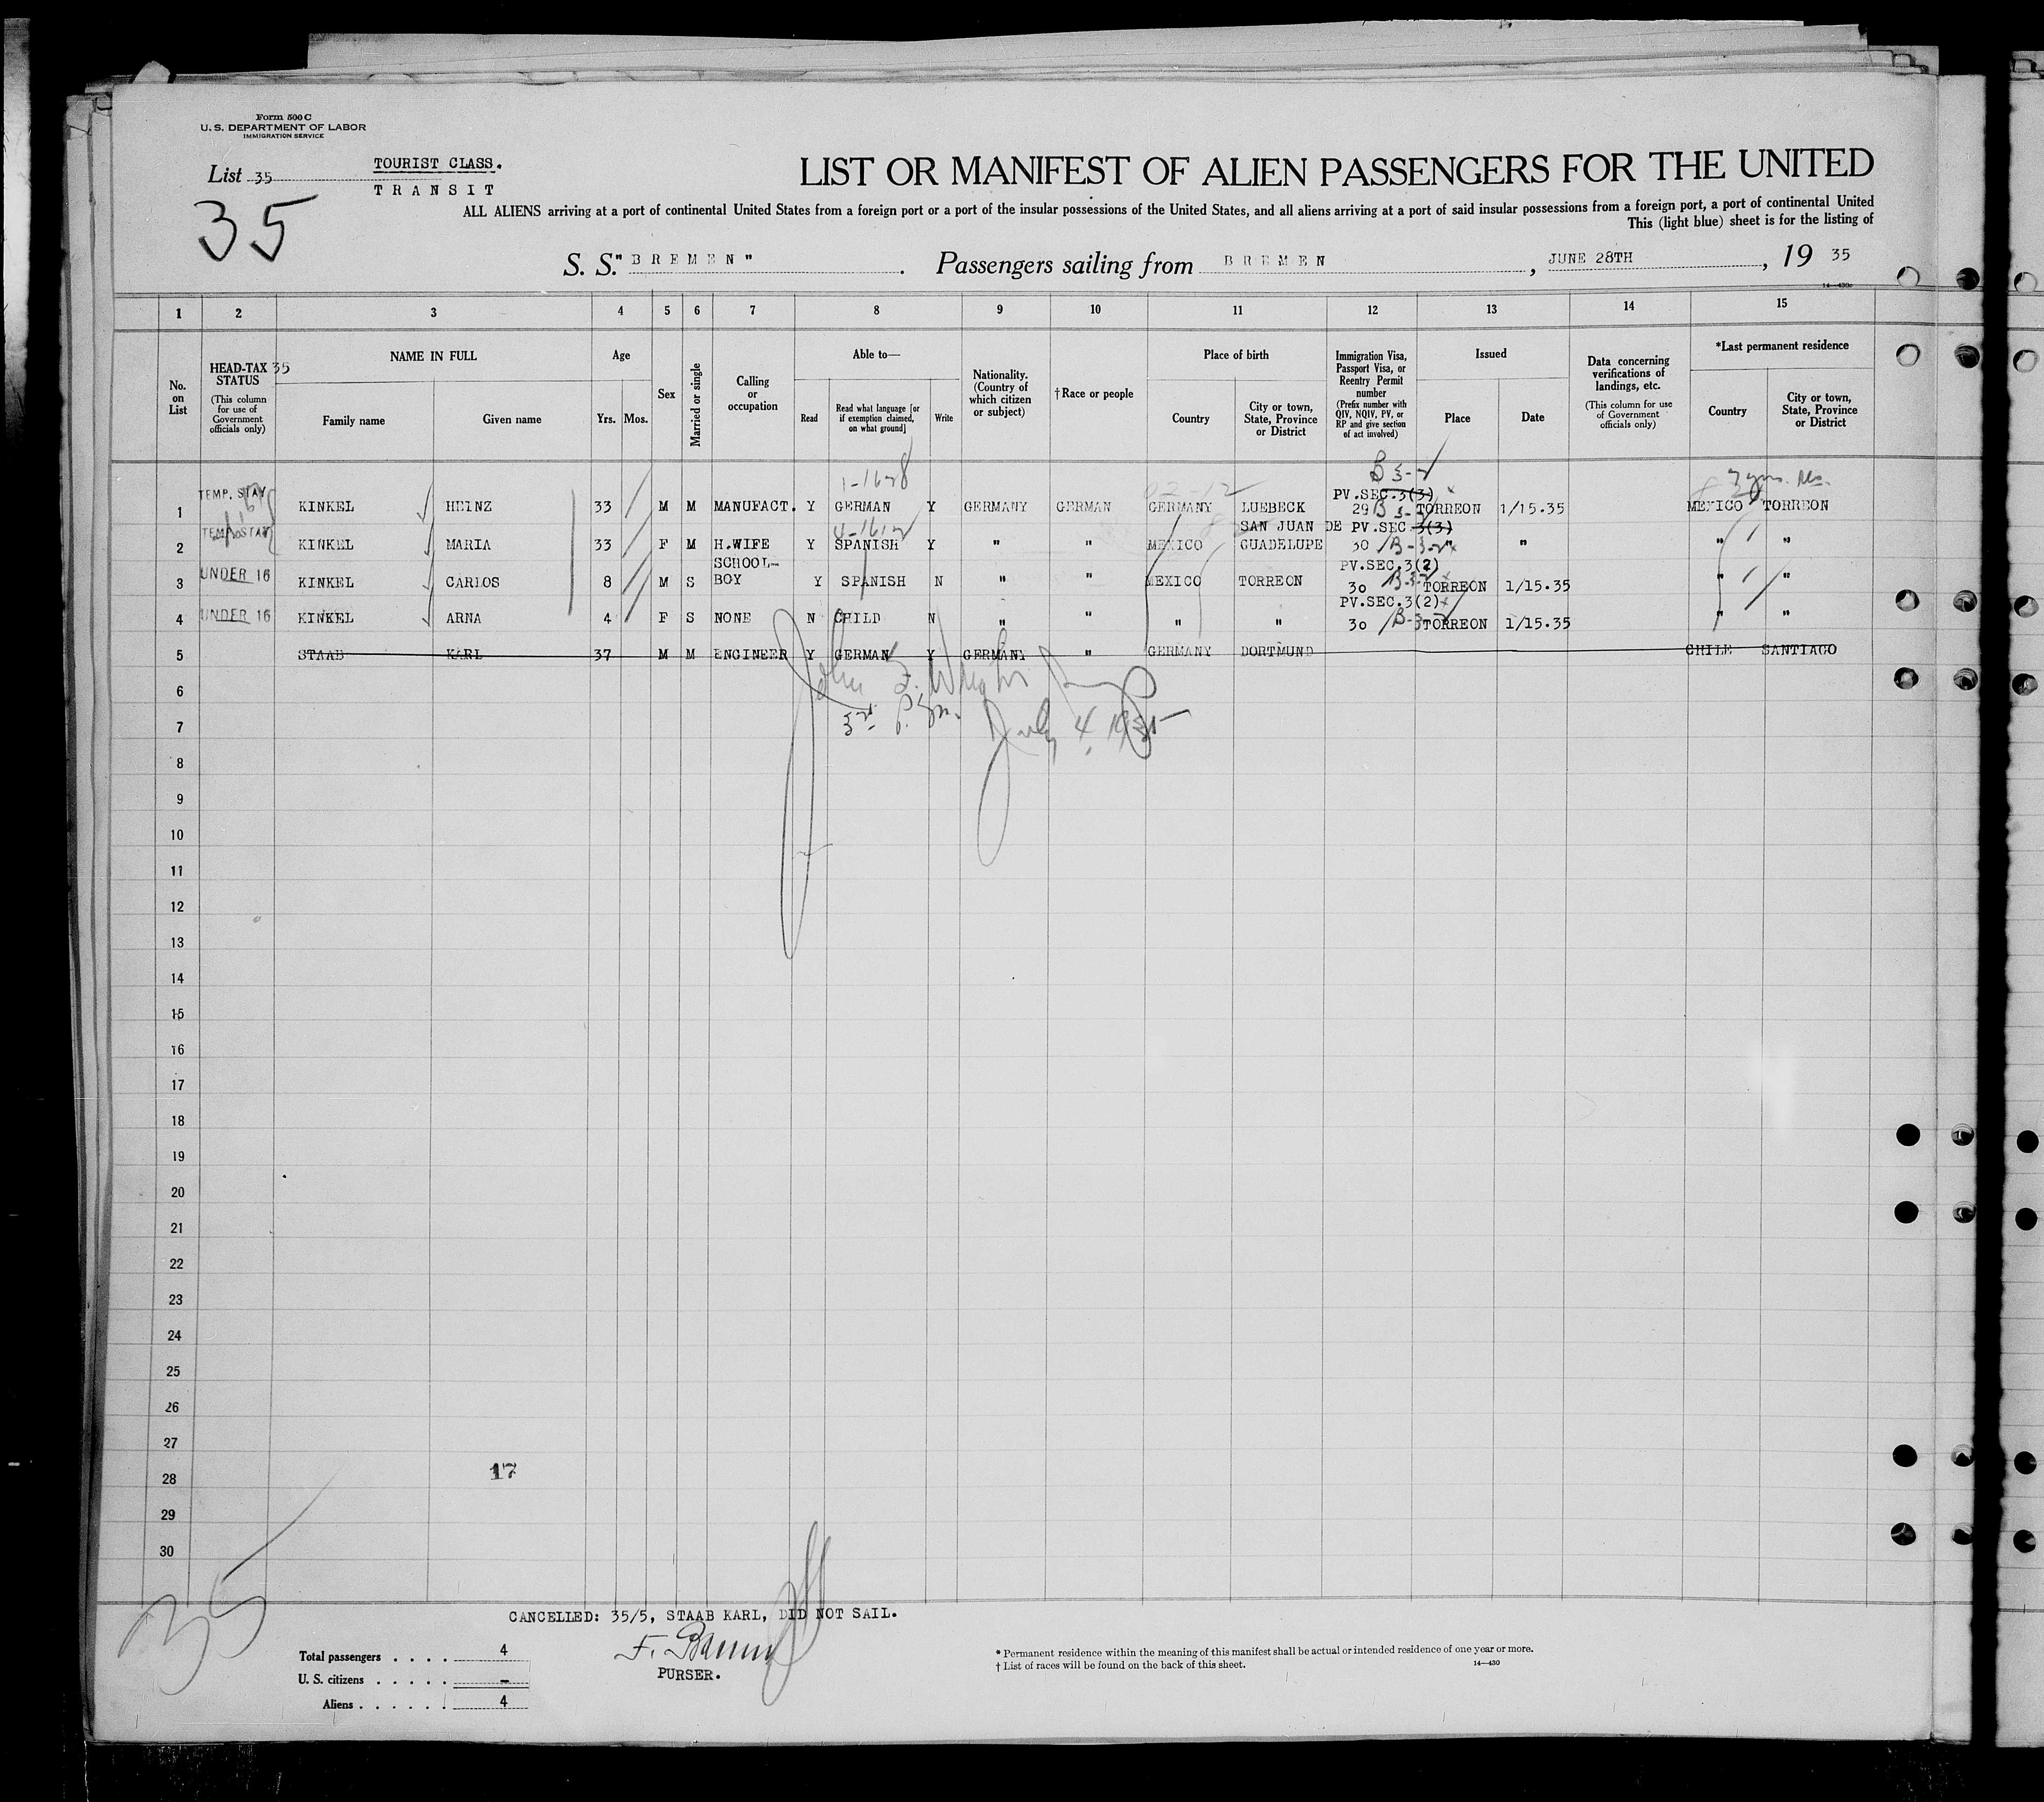 Form 500 C
U. S. DEPARTMENT OF LABOR
IMMIGRATION SERVICE
List 35
TOURIST CLASS.
TRANSIT
35
LIST OR MANIFEST OF ALIEN PASSENGERS FOR THE UNITED
ALL ALIENS arriving at a port of continental United States from a foreign port or a port of the insular possessions of the United States, and all aliens arriving at a port of said insular possessions from a foreign port, a port of continental United
This (light blue) sheet is for the listing of
S. S. "BREMEN". Passengers sailing from BREMEN, JUNE 28TH, 19 35
14—430c
1 2 3 4 5 6 7 8 9 10 11 12 13 14 15
No. on List
HEAD-TAX STATUS (This column for use of Government officials only)
35
NAME IN FULL
Family name
Given name
Age
Yrs. Mos.
Sex
Married or single
Calling or occupation
Able to—
Read
Read what language [or if exemption claimed, on what ground]
Write
Nationality. (Country of which citizen or subject)
†Race or people
Place of birth
Country
City or town, State, Province or District
Immigration Visa, Passport Visa, or Reentry Permit number (Prefix number with QIV, NQIV, PV, or RP and give section of act involved)
Issued
Place
Date
Data concerning verifications of landings, etc. (This column for use of Government officials only)
*Last permanent residence
Country
City or town, State, Province or District
1 TEMP. STAY KINKEL HEINZ 33 M M MANUFACT. Y GERMAN Y GERMANY GERMAN GERMANY LUEBECK PV.SEC.3(3) 29 TORREON 1/15.35 MEXICO TORREON
2 TEMP. STAY KINKEL MARIA 33 F M H.WIFE Y SPANISH Y " " MEXICO SAN JUAN DE GUADELUPE PV.SEC.3(3) 30 " " " "
3 UNDER 16 KINKEL CARLOS 8 M S SCHOOL-BOY Y SPANISH N " " MEXICO TORREON PV.SEC.3(2) 30 TORREON 1/15.35 " "
4 UNDER 16 KINKEL ARNA 4 F S NONE N CHILD N " " " " PV.SEC.3(2) 30 TORREON 1/15.35 " "
5 STAAB KARL 37 M M ENGINEER Y GERMAN Y GERMANY " GERMANY DORTMUND CHILE SANTIAGO
6
7
July 4 1935
8
9
10
11
12
13
14
15
16
17
18
19
20
21
22
23
24
25
26
27
28
17
29
30
35
CANCELLED: 35/5, STAAB KARL, DID NOT SAIL.
Total passengers . . . . 4
U. S. citizens . . . . . –
Aliens . . . . . . 4
PURSER.
* Permanent residence within the meaning of this manifest shall be actual or intended residence of one year or more.
† List of races will be found on the back of this sheet.
14—430